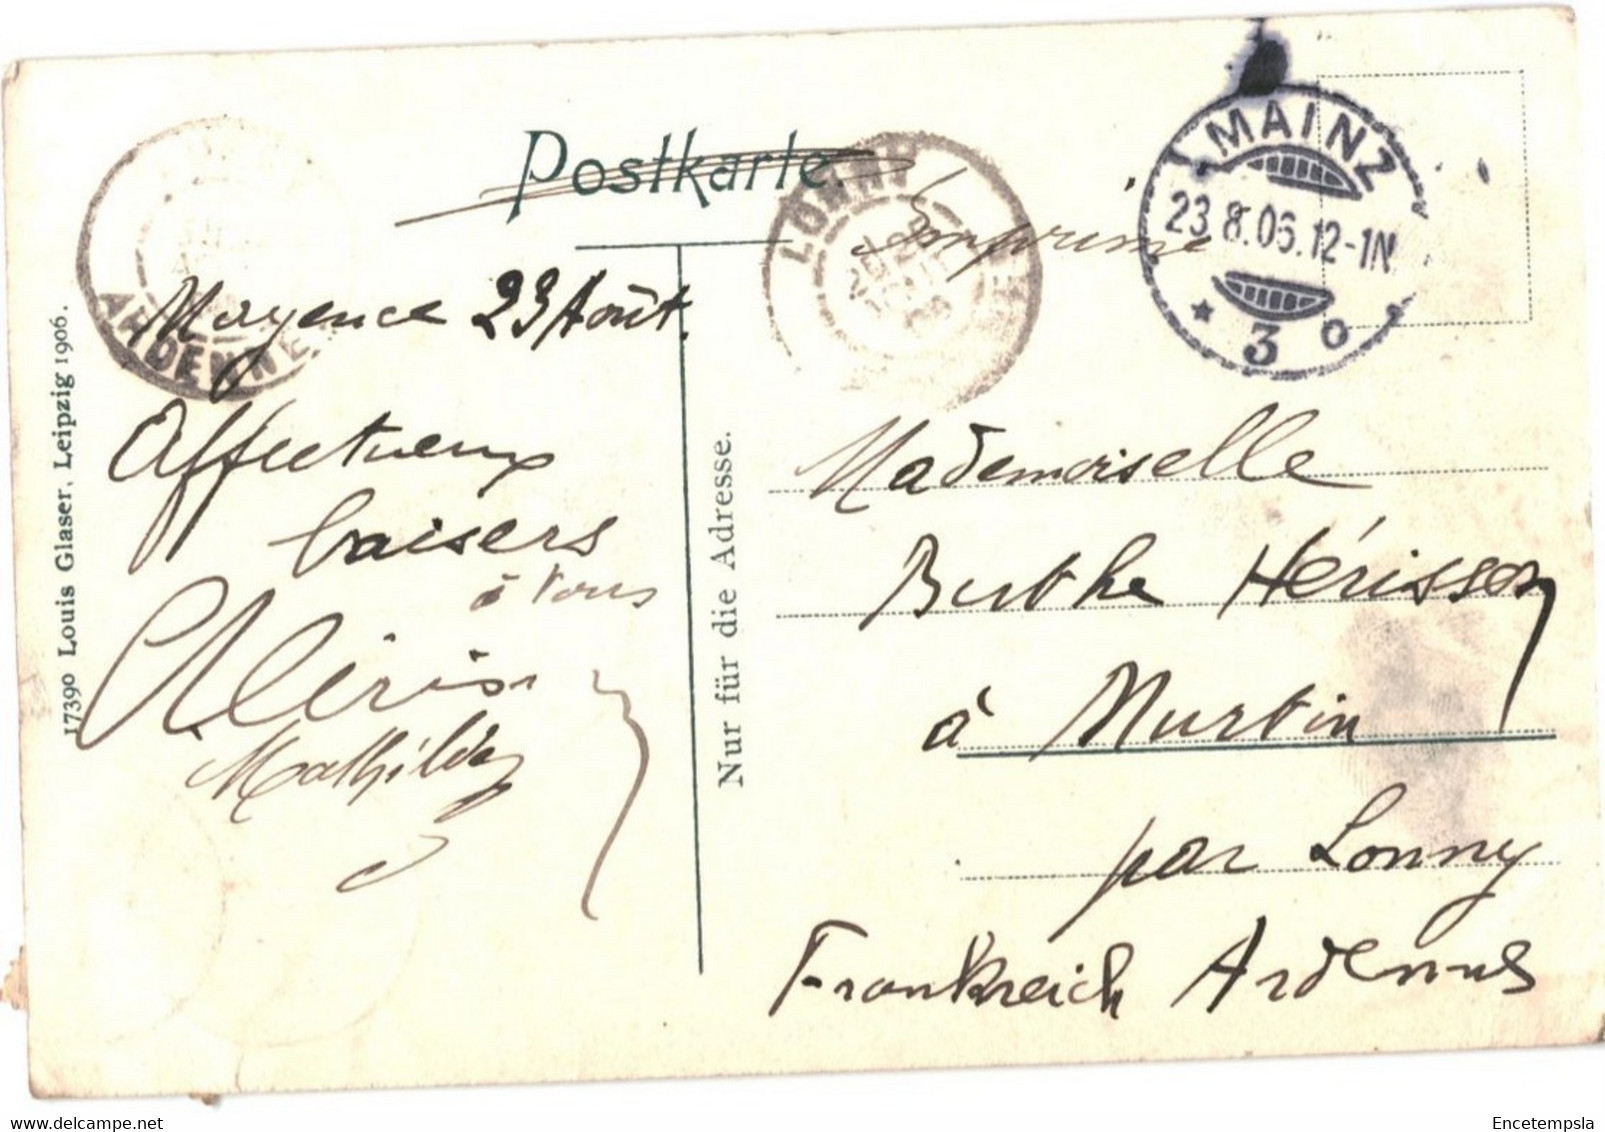 Postkarte.
Imprimé
MAINZ
23.8.06.12-1N
* 3 o
LONNY
ARDENNES
Mayence 23 Août.
Affectueux
baisers
à tous
Mathilde
17390 Louis Glaser, Leipzig 1906.
Nur für die Adresse.
Mademoiselle
Berthe Hérisson
à Murtin
par Lonny
Frankreich Ardennes
www.delcampe.net
Encetempsla